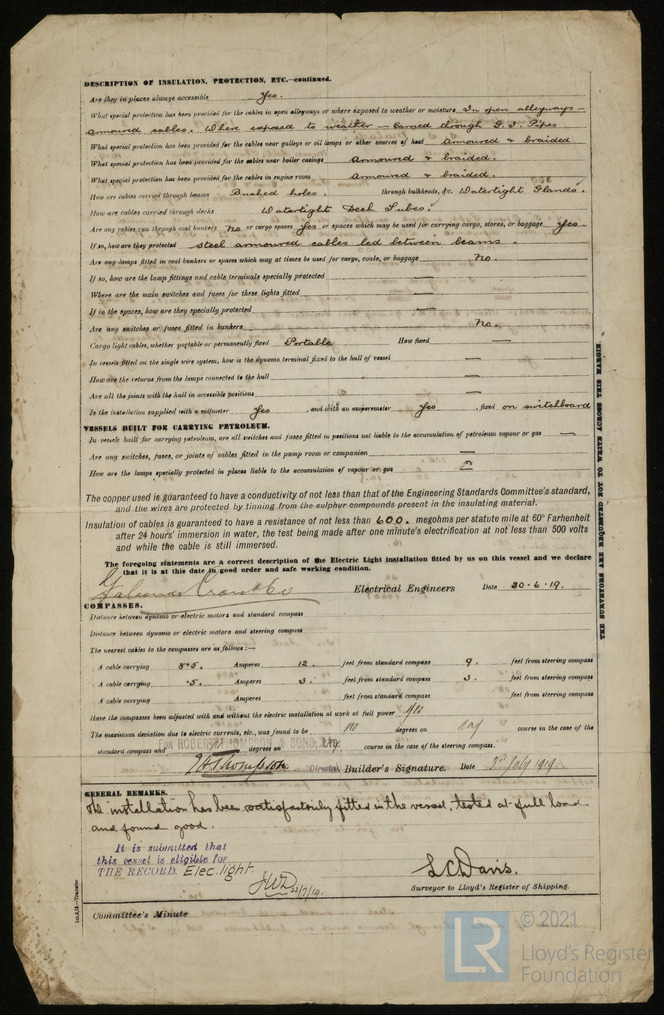 DESCRIPTION OF INSULATION, PROTECTION, ETC.—continued.
Are they in places always accessible Yes.
What special protection has been provided for the cables in open alleyways or where exposed to weather or moisture In open alleyways—
armoured cables. Where exposed to weather — Carried through G.I. Pipes
What special protection has been provided for the cables near galleys or oil lamps or other sources of heat Armoured & braided
What special protection has been provided for the cables near boiler casings Armoured & braided.
What special protection has been provided for the cables in engine room Armoured & braided.
How are cables carried through beams Bushed holes. through bulkheads, &c. Watertight Glands.
How are cables carried through decks Watertight Deck Tubes.
Are any cables run through coal bunkers No or cargo spaces Yes or spaces which may be used for carrying cargo, stores, or baggage Yes
If so, how are they protected Steel armoured cables led between beams.
Are any lamps fitted in coal bunkers or spaces which may at times be used for cargo, coals, or baggage No.
If so, how are the lamp fittings and cable terminals specially protected —
Where are the main switches and fuses for these lights fitted —
If in the spaces, how are they specially protected —
Are any switches or fuses fitted in bunkers No.
Cargo light cables, whether portable or permanently fixed Portable How fixed —
In vessels fitted on the single wire system, how is the dynamo terminal fixed to the hull of vessel —
How are the returns from the lamps connected to the hull —
Are all the joints with the hull in accessible positions —
Is the installation supplied with a voltmeter Yes , and with an amperemeter Yes , fixed on switchboard
VESSELS BUILT FOR CARRYING PETROLEUM.
In vessels built for carrying petroleum, are all switches and fuses fitted in positions not liable to the accumulation of petroleum vapour or gas —
Are any switches, fuses, or joints of cables fitted in the pump room or companion —
How are the lamps specially protected in places liable to the accumulation of vapour or gas
The copper used is guaranteed to have a conductivity of not less than that of the Engineering Standards Committee's standard,
and the wires are protected by tinning from the sulphur compounds present in the insulating material.
Insulation of cables is guaranteed to have a resistance of not less than 600. megohms per statute mile at 60° Farhenheit
after 24 hours' immersion in water, the test being made after one minute's electrification at not less than 500 volts
and while the cable is still immersed.
The foregoing statements are a correct description of the Electric Light installation fitted by us on this vessel and we declare
that it is at this date in good order and safe working condition.
Electrical Engineers Date 30.6.19.
COMPASSES.
Distance between dynamo or electric motors and standard compass
Distance between dynamo or electric motors and steering compass
The nearest cables to the compasses are as follows:—
A cable carrying Amperes 12. feet from standard compass 9. feet from steering compass
A cable carrying .5. Amperes 3. feet from standard compass 3. feet from steering compass
A cable carrying Amperes feet from standard compass feet from steering compass
Have the compasses been adjusted with and without the electric installation at work at full power Yes
The maximum deviation due to electric currents, etc., was found to be no degrees on any course in the case of the
standard compass and degrees on course in the case of the steering compass.
FOR ROBERT THOMPSON & SONS, LTD.
Thompson. Director Builder's Signature. Date 2nd July 1919
GENERAL REMARKS.
The installation has been satisfactorily fitted in the vessel, tested at full load
and found good.
It is submitted that
this vessel is eligible for
THE RECORD. Elec. light.
L C Davis.
Surveyor to Lloyd's Register of Shipping.
Committee's Minute
THE SURVEYORS ARE REQUESTED NOT TO WRITE ACROSS THIS MARGIN.
LR © 2021
Lloyd's Register
Foundation